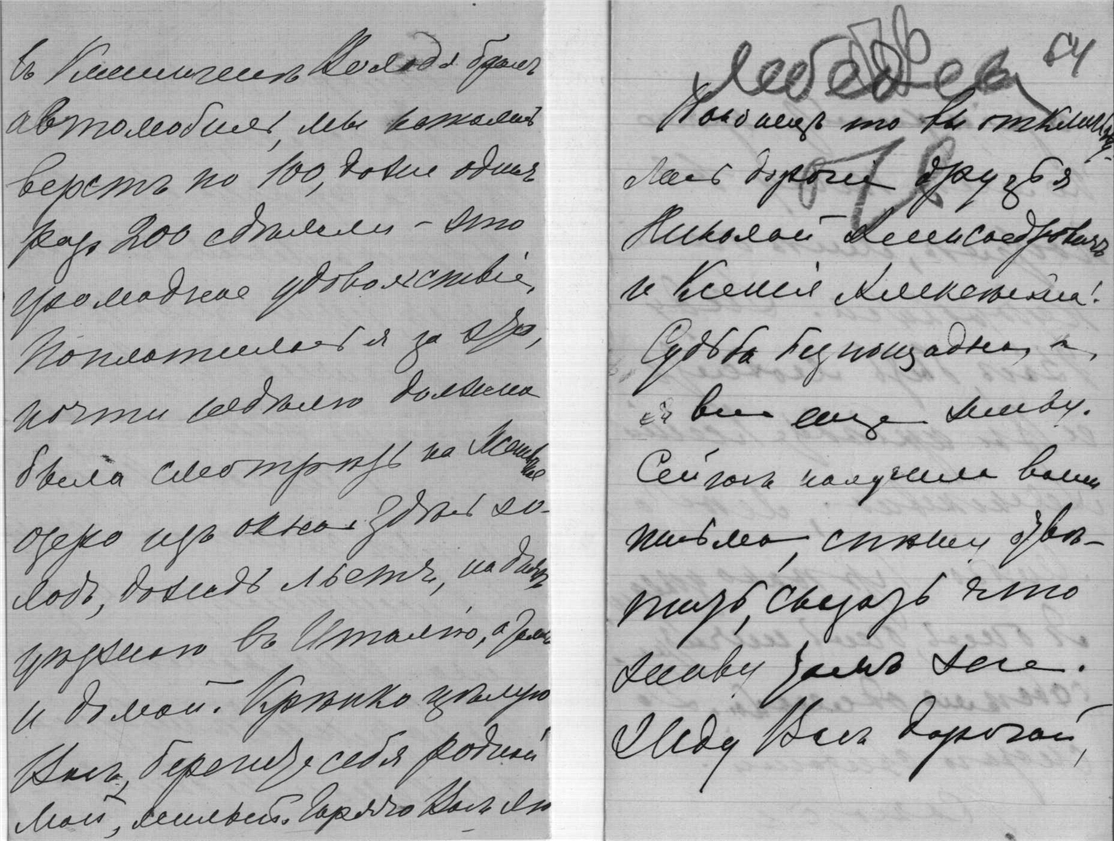 въ Киссингенъ Володя бралъ
автомобиль, мы катались
верстъ по 100, даже одинъ
разъ 200 сдѣлали – это
громадное удовольствіе,
Поплатилась я за это,
почти недѣлю должна
была смотрѣть на
озеро изъ окна. Здѣсь хо-
лодъ, дождь льетъ, на дняхъ
уѣзжаю въ Италію, а тамъ
и домой. Крѣпко цѣлую
Васъ, берегите себя родной
мой, милый. Горячо Васъ лю
Лебедевъ 64
Наконецъ то вы откликну-
лись дорогіе друзья
Николай Александровичъ
и Ксенія Алексѣевна!
Судьба безпощадна,
я все еще живу.
Сейчасъ получила ваши
письма, спѣшу отвѣ-
тить, сказать что
живу тамъ же.
Жду Васъ дорогой,